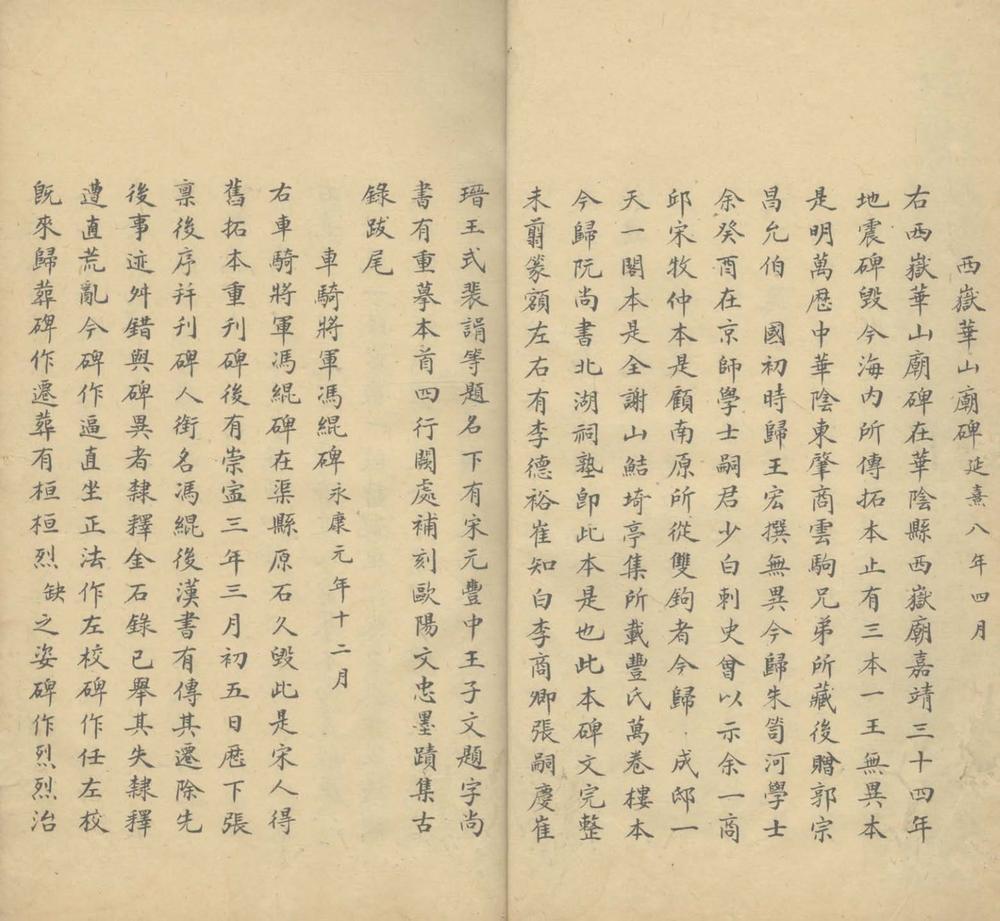 西嶽華山廟碑延熹八年四月
右西嶽華山廟碑在華陰縣西嶽廟嘉靖三十四年
地震碑毀今海內所傳拓本止有三本一王無異本
是明萬歷中華陰東肇商雲駒兄弟所藏後贈郭宗
昌允伯 國初時歸王宏撰無異今歸朱笥河學士
余癸酉在京師學士嗣君少白刺史曾以示余一商
邱宋牧仲本是顧南原所從雙鉤者今歸 成邸一
天一閣本是全謝山鮚埼亭集所載豐氏萬卷樓本
今歸阮尚書北湖祠塾卽此本是也此本碑文完整
未翦篆額左右有李德裕崔知白李商卿張嗣慶崔
瑨王式裴諿等題名下有宋元豐中王子文題字尚
書有重摹本首四行闕處補刻歐陽文忠墨蹟集古
錄跋尾
車騎將軍馮緄碑永康元年十二月
右車騎將軍馮緄碑在渠縣原石久毀此是宋人得
舊拓本重刊碑後有崇寍三年三月初五日歷下張
稟後序幷刊碑人銜名馮緄後漢書有傳其遷除先
後事迹舛錯與碑異者隸釋金石錄已舉其失隸釋
遭直荒亂今碑作逼直坐正法作左校碑作任左校
旣來歸葬碑作遷葬有桓桓烈缺之姿碑作烈烈治